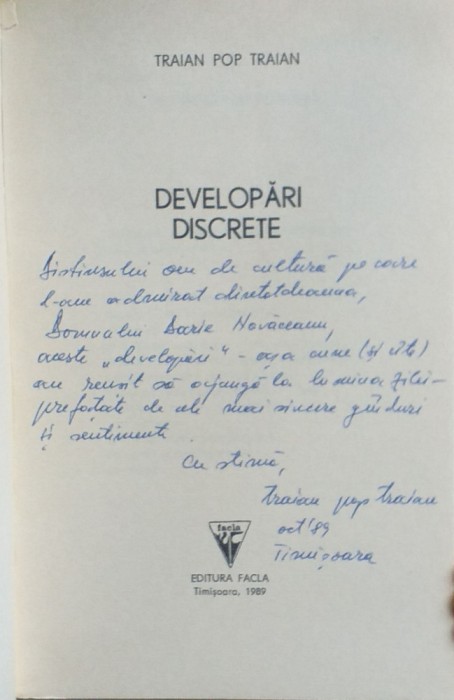 TRAIAN POP TRAIAN
DEVELOPĂRI
DISCRETE
Distinsului om de cultură pe care
l-am admirat dintotdeauna,
Domnului Darie Novăceanu,
aceste „developări” - așa cum (și cîte)
au reușit să ajungă la lumina zilei -
prefațate de cele mai sincere gînduri
și sentimente
Cu stimă,
traian pop traian
oct '89
Timișoara
facla
EDITURA FACLA
Timișoara, 1989